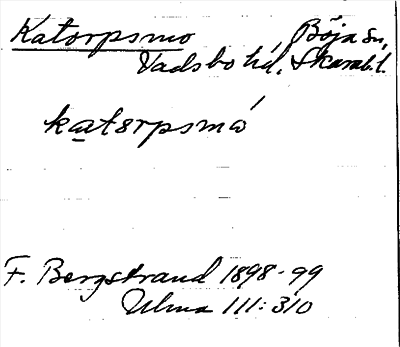 Katorpsmo Böja sn,
Vadsbo hd, Skarab. l.
katorpsmó
F. Bergstrand 1898-99
Ulma 111:310